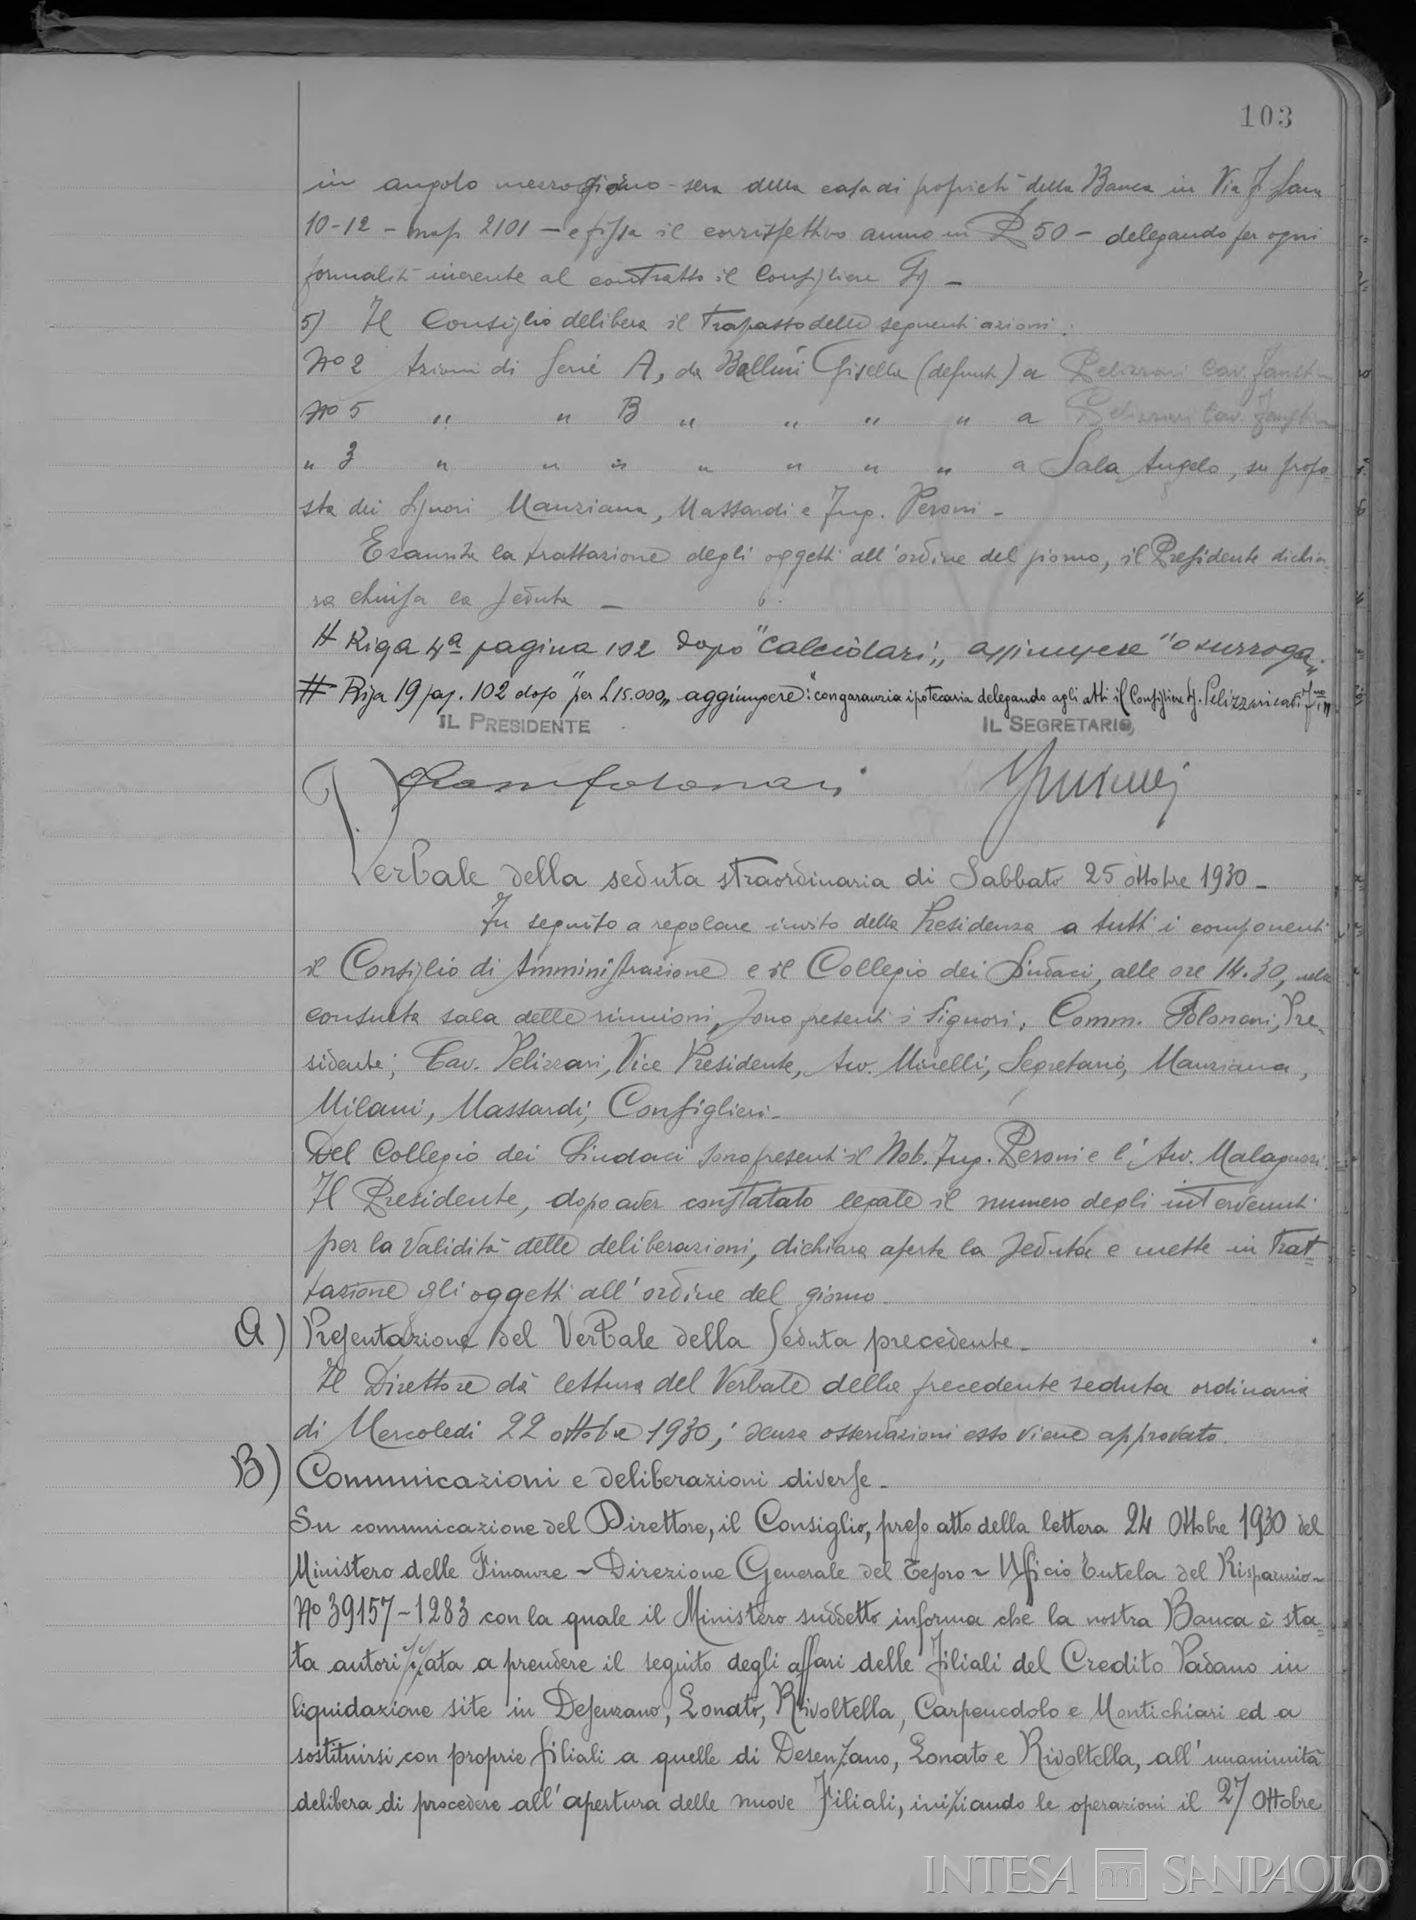 103
in angolo mezzogiorno-sera della casa di proprietà della Banca in Via
10-12 - map. 2101 - e fissa il corrispettivo annuo in £ 50 - delegando per ogni
formalità inerente al contratto il Consigliere
5) Il Consiglio delibera il trapasso delle seguenti azioni:
No 2 Azioni di Serie A, da Bellini Gisella (defunta) a Pelizzari Cav.
No 5 " " B " " " " a Pelizzari Cav.
" 3 " " " " " " " a Sala Angelo, su propo-
sta dei Signori Manziana, Massardi e Ing. Peroni -
Esaurita la trattazione degli oggetti all'ordine del giorno, il Presidente dichia-
ra chiusa la seduta -
# Riga 4ª pagina 102 dopo "Calciolari" aggiungere "o surroga"
# Riga 19 pag. 102 dopo "per £ 15.000" aggiungere: "con garanzia ipotecaria delegando agli atti il Consigliere Pelizzari
IL PRESIDENTE
IL SEGRETARIO
Verbale della seduta straordinaria di Sabbato 25 ottobre 1930 -
In seguito a regolare invito della Presidenza a tutti i componenti
il Consiglio di Amministrazione e il Collegio dei Sindaci, alle ore 14.30, nella
consueta sala delle riunioni, sono presenti i Signori, Comm. Folonari, Pre-
sidente; Cav. Pelizzari, Vice Presidente, Avv. Minelli, Segretario, Manziana,
Milani, Massardi, Consiglieri -
Del Collegio dei Sindaci sono presenti il Nob. Ing. Peroni e l'Avv. Malagnini.
Il Presidente, dopo aver constatato legale il numero degli intervenuti
per la validità delle deliberazioni, dichiara aperta la seduta e mette in trat=
tazione gli oggetti all'ordine del giorno.
A) Presentazione del Verbale della Seduta precedente -
Il Direttore dà lettura del Verbale della precedente seduta ordinaria
di Mercoledì 22 ottobre 1930; senza osservazioni esso viene approvato.
B) Comunicazioni e deliberazioni diverse -
Su comunicazione del Direttore, il Consiglio, preso atto della lettera 24 Ottobre 1930 del
Ministero delle Finanze ~ Direzione Generale del Tesoro ~ Ufficio Tutela del Risparmio ~
No 39157-1283 con la quale il Ministero suddetto informa che la nostra Banca è sta=
ta autorizzata a prendere il seguito degli affari delle Filiali del Credito Padano in
liquidazione site in Desenzano, Lonato, Rivoltella, Carpenedolo e Montichiari ed a
sostituirsi con proprie filiali a quelle di Desenzano, Lonato e Rivoltella, all'unanimità
delibera di procedere all'apertura delle nuove Filiali, iniziando le operazioni il 27 Ottobre
INTESA SANPAOLO